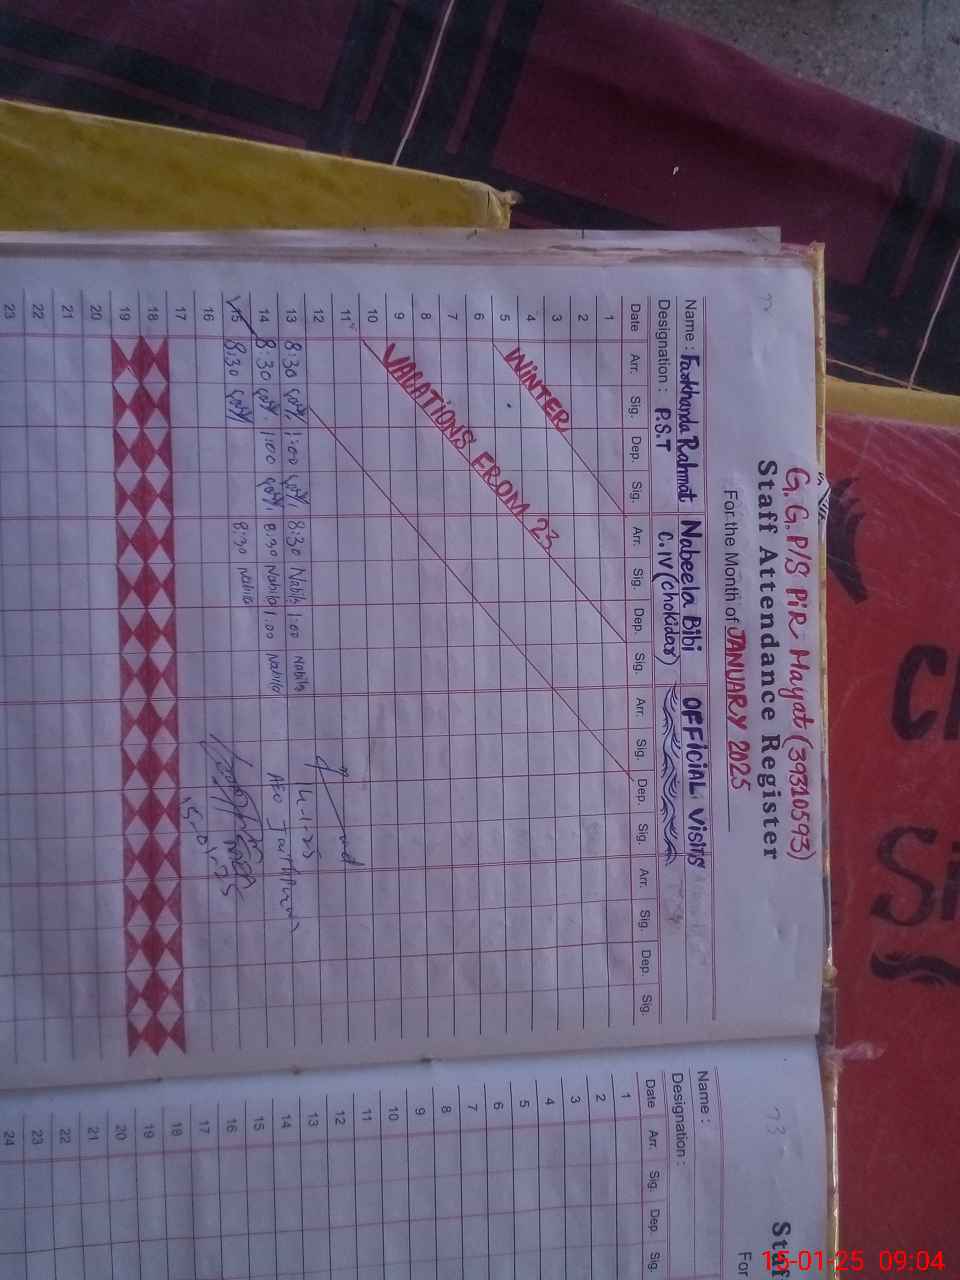 G.G.P/S PiR Mayat (39310593)
Staff Attendance Register
For the Month of JANUARY 2025
Name : Farkhanda Rahmat Nabeela Bibi OFFICIAL Visits
Designation : P.S.T C.IV (chokidar)
Date Arr. Sig. Dep. Sig. Arr. Sig. Dep. Sig. Arr. Sig. Dep. Sig. Arr. Sig. Dep. Sig.
1
2
3
4
5 WINTER
6
7
8
9
10 VACATIONS FROM 23
11
12
13 8:30 1:00 8:30 Nabila 1:00 Nabila
14 8:30 1:00 8:30 Nabila 1:00 Nabila
15 8:30 8:30 Nabila
16
17
18
19
20
21
22
23
AEO
15-01-25
23
Staf
For
Name :
Designation :
Date Arr. Sig. Dep. Sig.
1
2
3
4
5
6
7
8
9
10
11
12
13
14
15
16
17
18
19
20
21
22
23
24
15-01-25 09:04